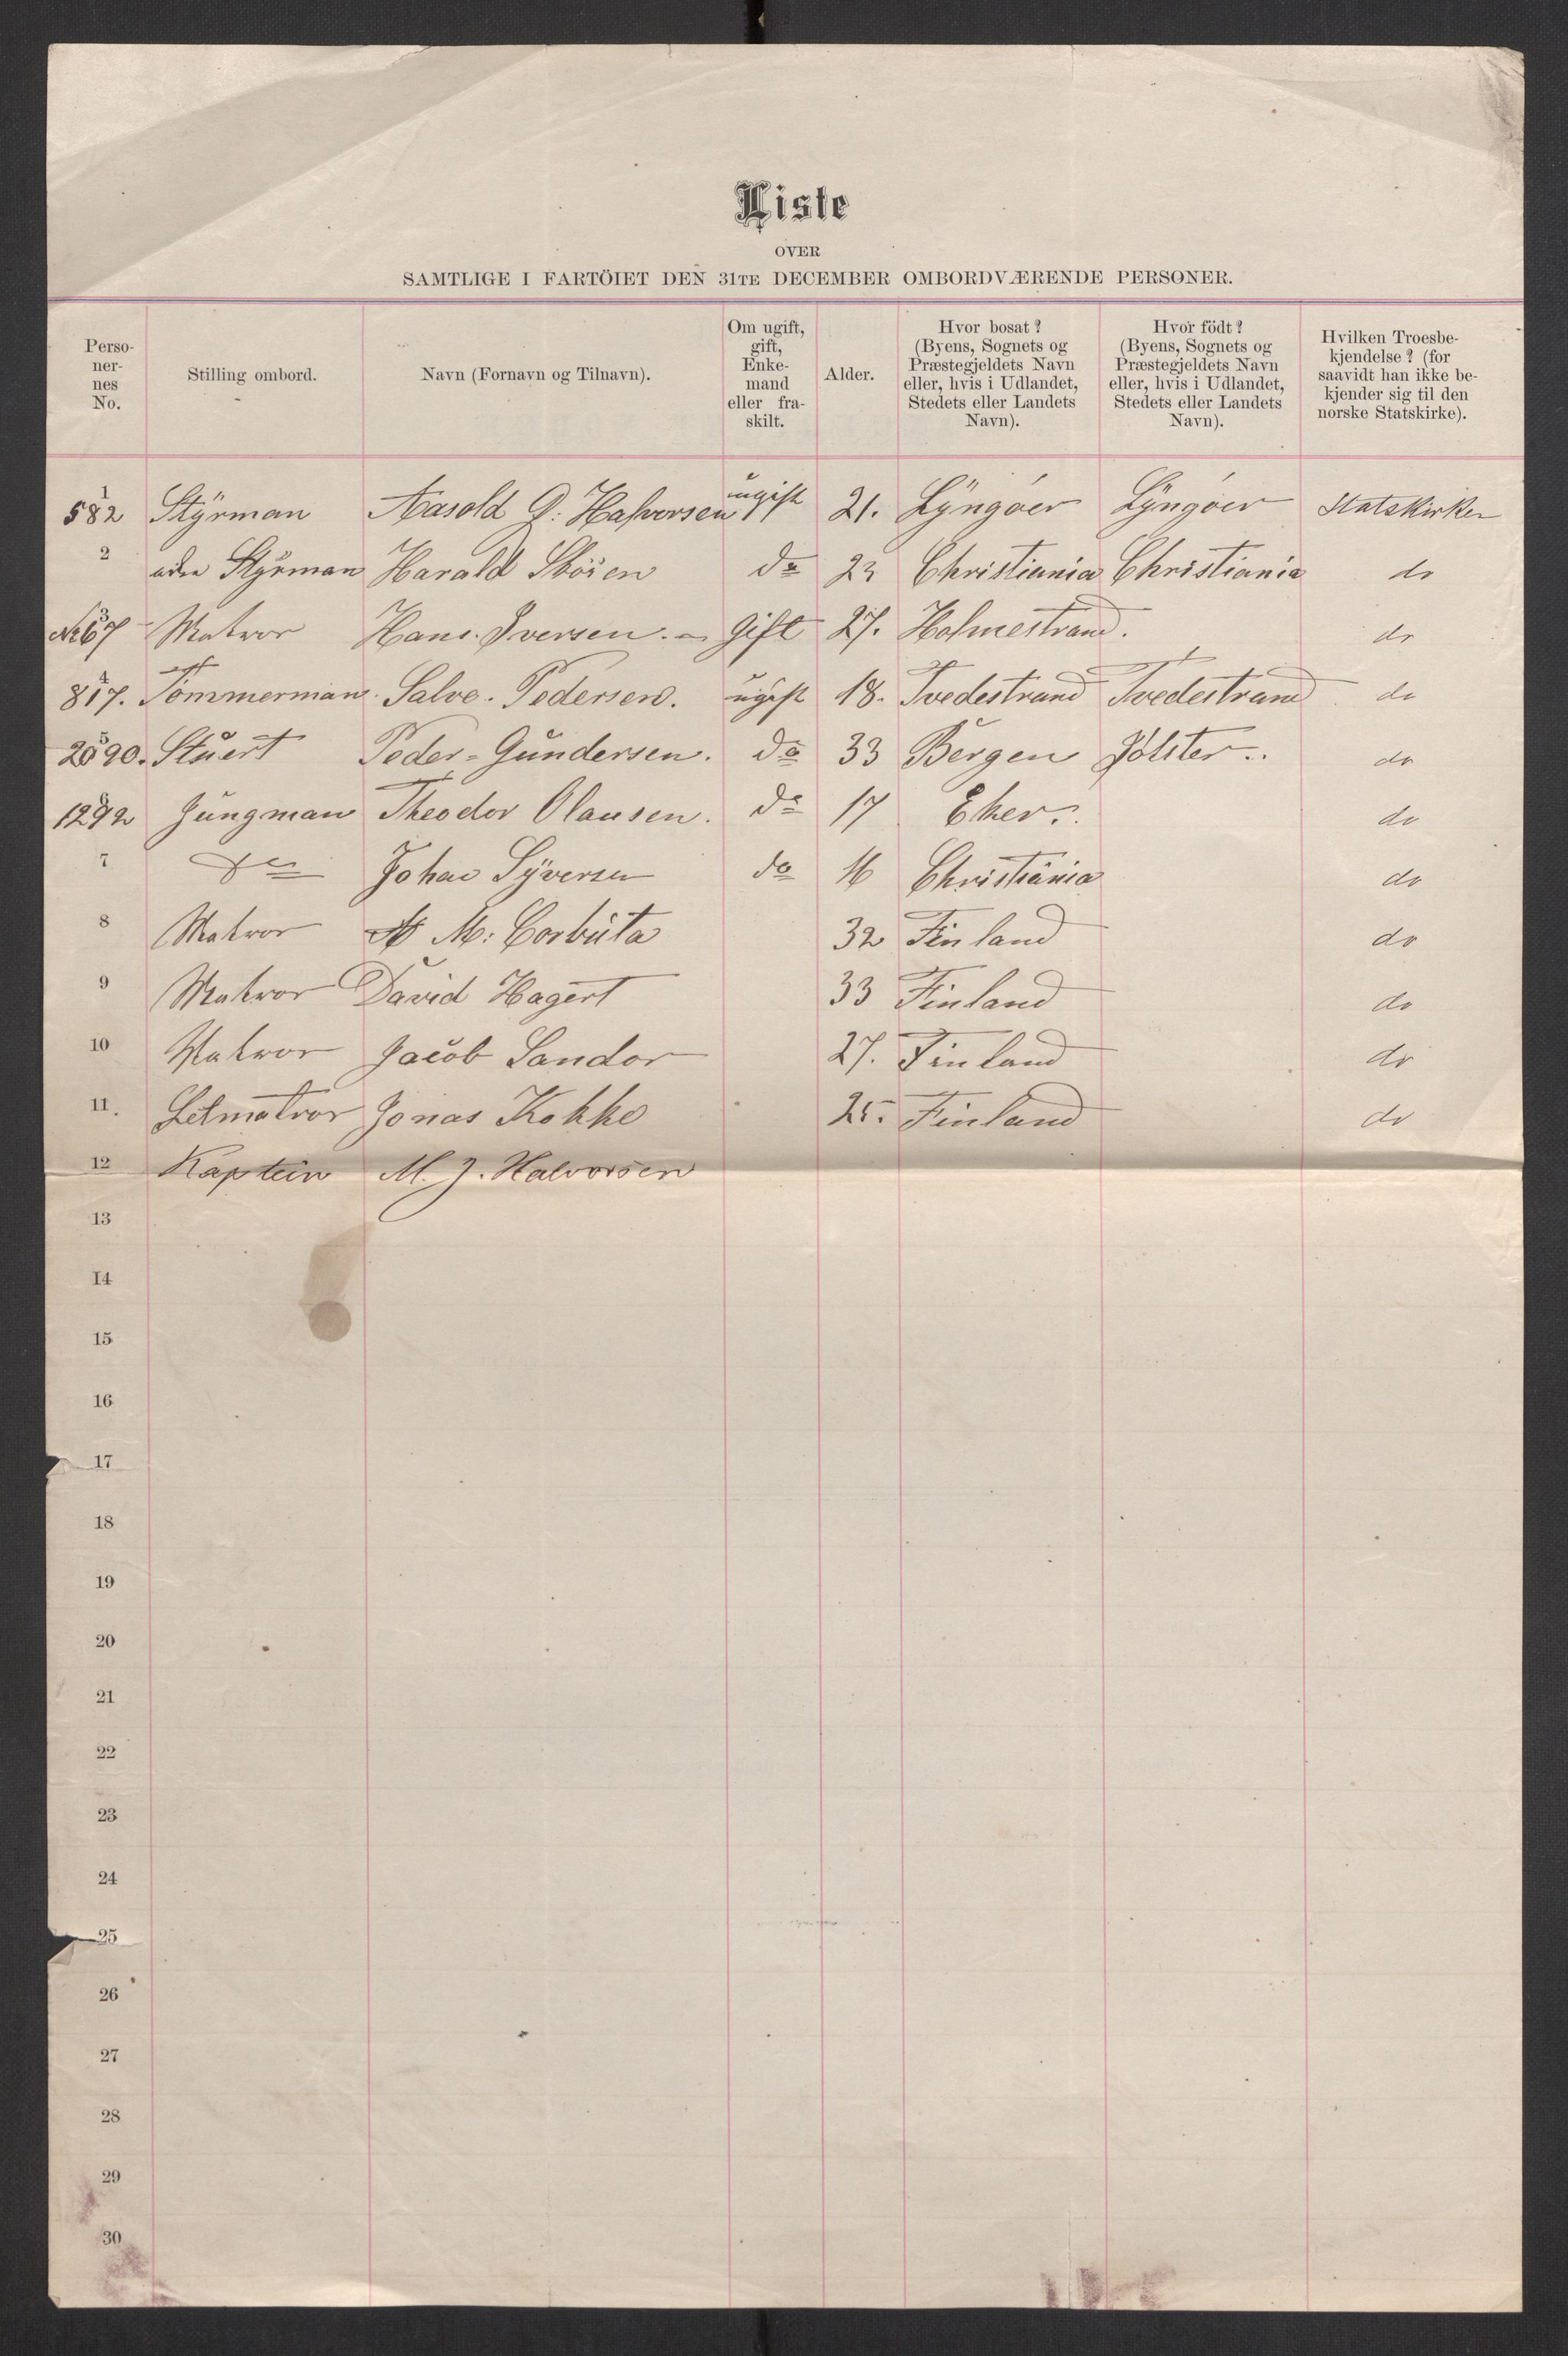 Liste
OVER
SAMTLIGE I FARTÖIET DEN 31TE DECEMBER OMBORDVÆRENDE PERSONER.
Perso-
ner-
nes
No.
Stilling ombord.
Navn (Fornavn og Tilnavn).
Om ugift,
gift,
Enke-
mand
eller fra-
skilt.
Alder.
Hvor bosat?
(Byens, Sognets og
Præstegjeldets Navn
eller, hvis i Udlandet,
Stedets eller Landets
Navn).
Hvor födt?
(Byens, Sognets og
Præstegjeldets Navn
eller, hvis i Udlandet,
Stedets eller Landets
Navn).
Hvilken Troesbe-
kjendelse? (for
saavidt han ikke be-
kjender sig til den
norske Statskirke).
1 582 Styrman Aasold G: Halvorsen ugift 21. Lyngöer Lyngöer Statskirken
2 Styrman Harald do 23 Christiania Christiania do
3 No 67 Matros Hans. Iversen. gift 27. Holmestrand. do
4 817. Tömmerman. Salve. Pedersen. ugift 18. Tvedestrand Tvedestrand do
5 2090. Stuert Peder Gundersen. do 33 Bergen Jölster.. do
6 1292 Jungman Theodor Olausen. do 17 Eker. do
7 do Johan Syversen do 16 Christiania do
8 Matros M: Corbuta 32 Finland do
9 Matros David Hagert 33 Finland do
10 Matros Jacob Sandor 27. Finland do
11. Letmatros Jonas Kokko 25. Finland do
12 Kaptein M. J. Halvorsen
13
14
15
16
17
18
19
20
21
22
23
24
25
26
27
28
29
30